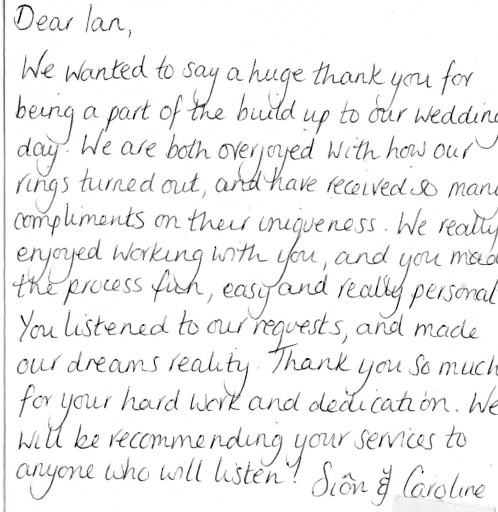 Dear Ian,
We wanted to say a huge thank you for
being a part of the build up to our wedding
day. We are both overjoyed with how our
rings turned out, and have received so man
compliments on their uniqueness. We really
enjoyed working with you, and you mad
the process fun, easy and really personal
You listened to our requests, and made
our dreams reality. Thank you so much
for your hard work and dedication. We
will be recommending your services to
anyone who will listen! Siôn & Caroline